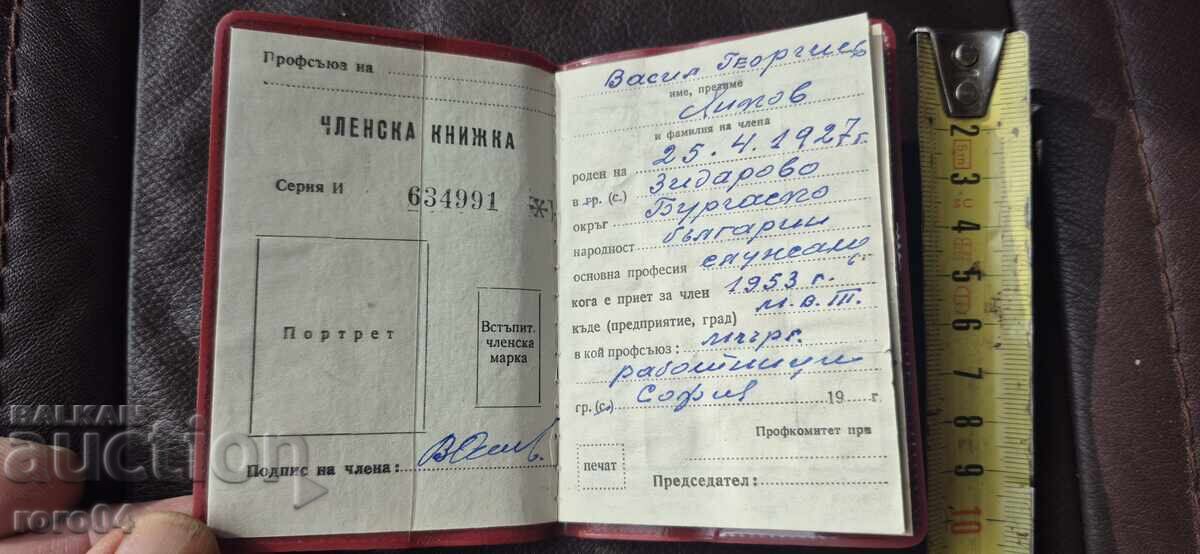 Профсъюз на
ЧЛЕНСКА КНИЖКА
Серия И 634991
Портрет
Встъпит.
членска
марка
Подпис на члена:
Васил Георгиев
име, презиме
и фамилия на члена
роден на 25.4.1927 г.
в гр. (с.) Зидарово
окръг Бургаско
народност българин
основна професия
кога е приет за член 1953 г.
къде (предприятие, град) М.В.Т.
в кой профсъюз: търг.
работници
гр. (с.) София 19 г.
Профкомитет при
печат
Председател:
2
3
4
5
6
7
8
9
10
BALKAN
auction
roro04